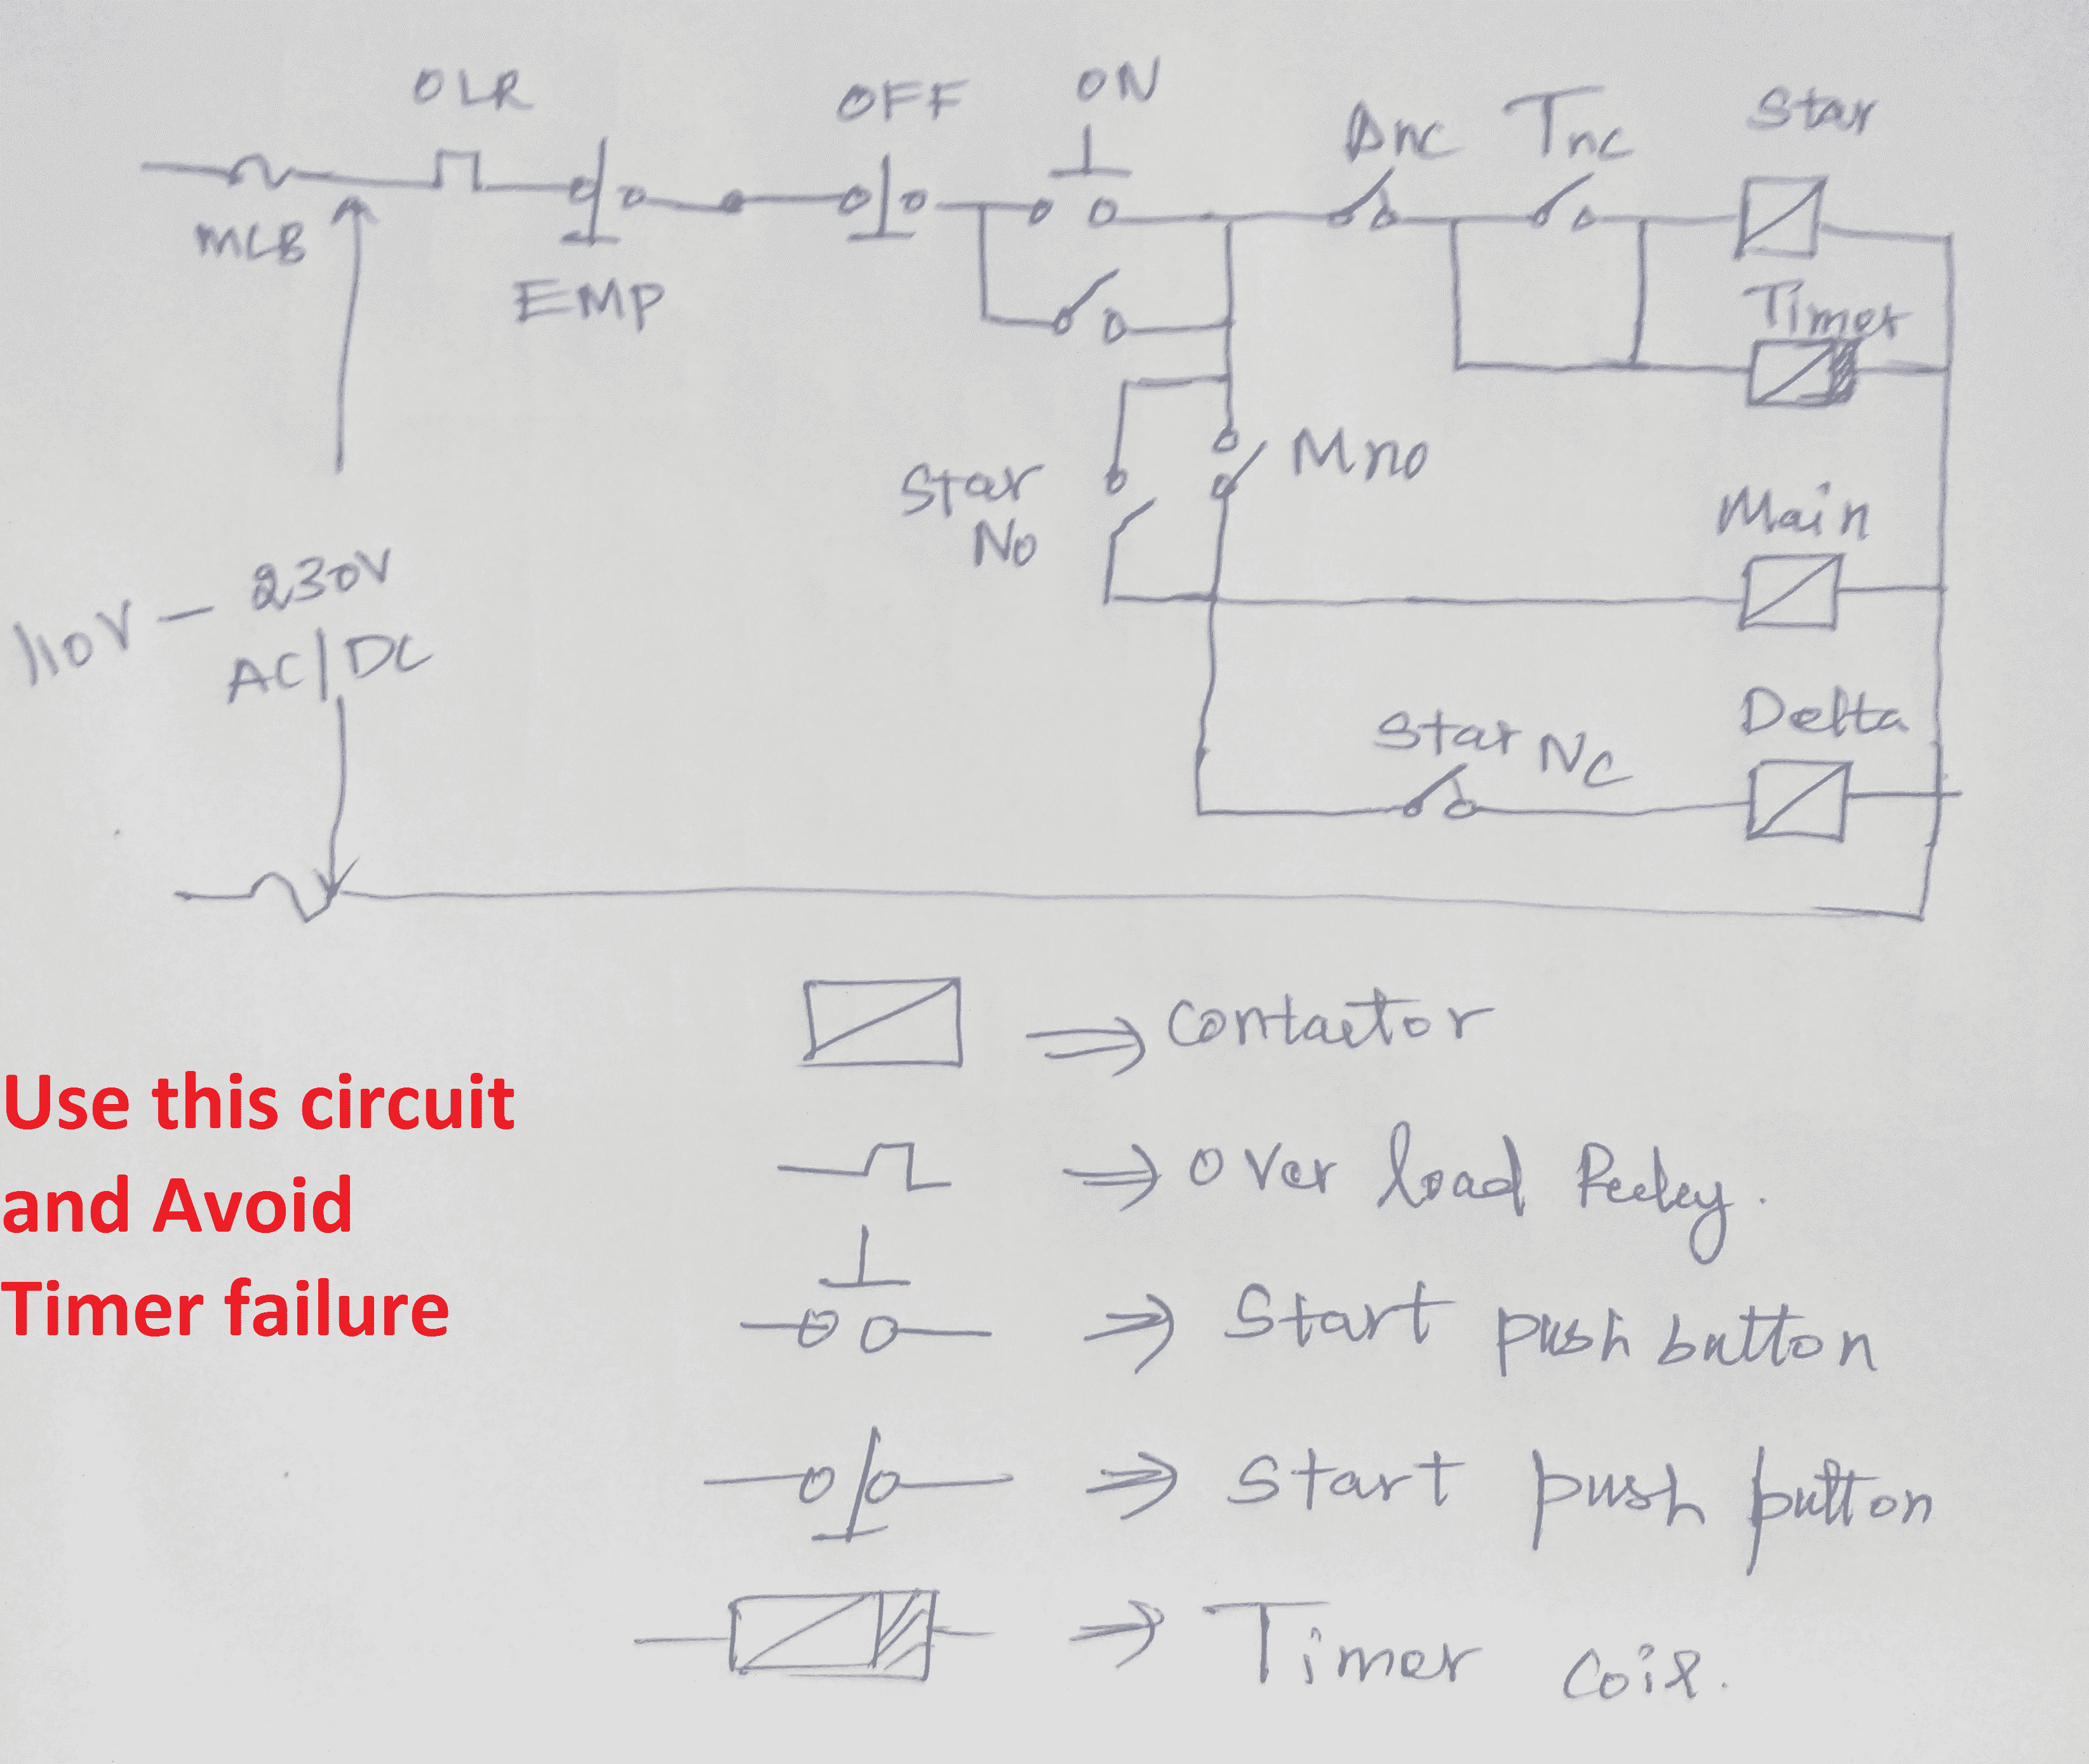 OLR
OFF
ON
Dnc
Tnc
Star
MCB
EMP
Timer
Star
No
Mno
Main
110V - 230V
AC/DC
Star NC
Delta
Contactor
Use this circuit
and Avoid
Timer failure
Over load Reeley.
Start push button
Start push button
Timer coil.